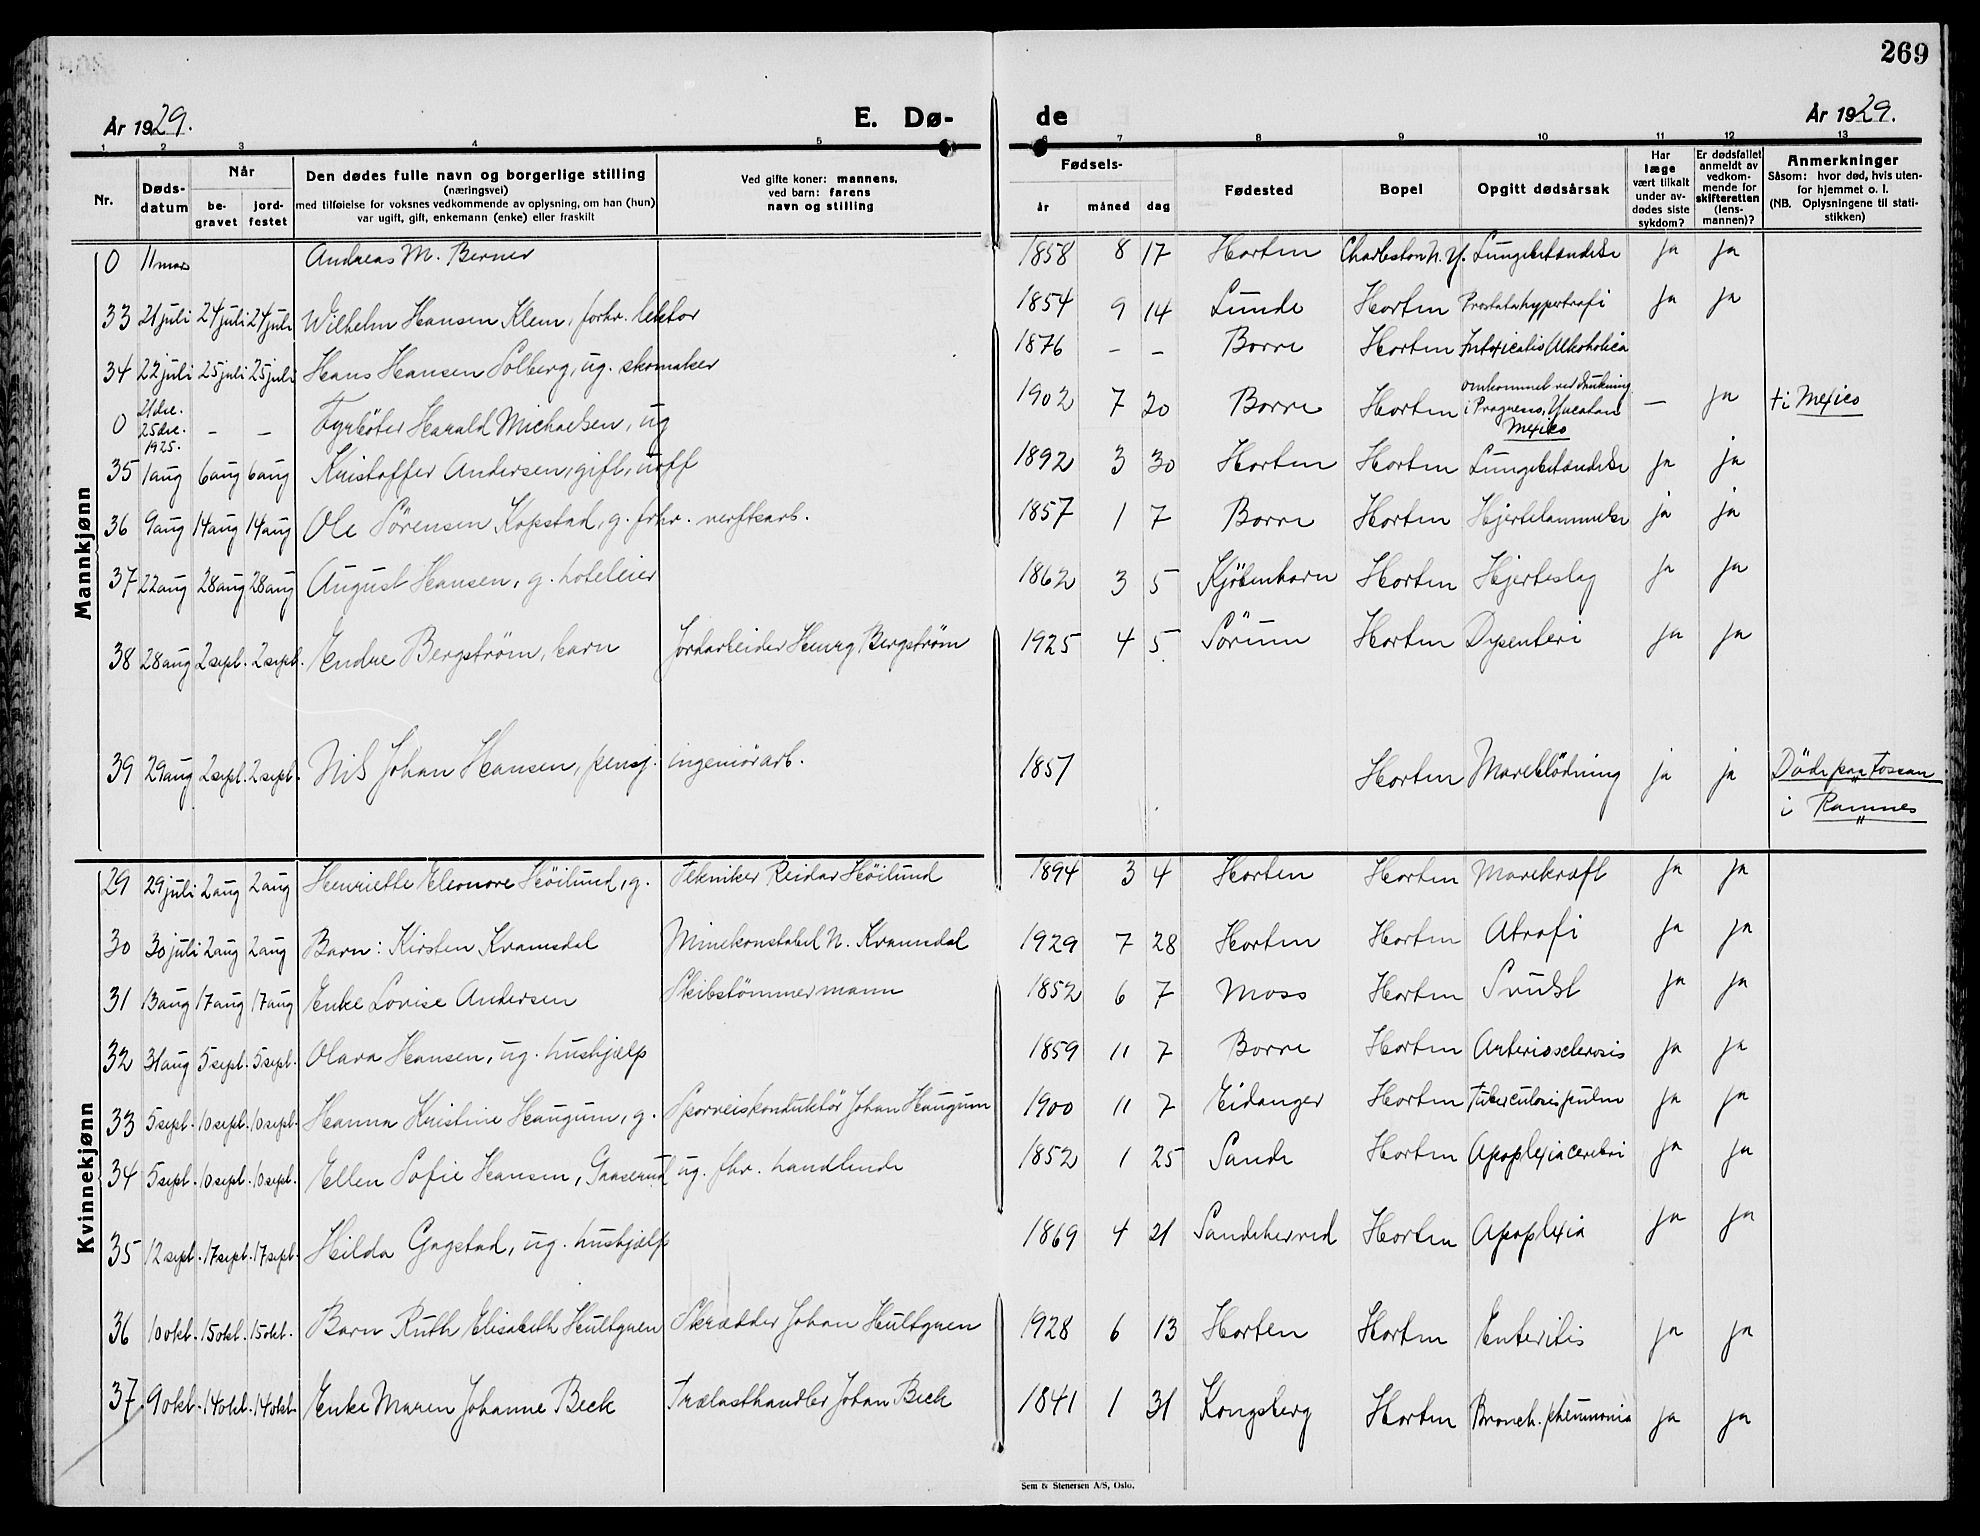 269
År 1929. E. Dø- de År 1929.
1 2 3 4 5 6 7 8 9 10 11 12 13
Nr. Døds-datum Når be-gravet jord-festet Den dødes fulle navn og borgerlige stilling (næringsvei) med tilføielse for voksnes vedkommende av oplysning, om han (hun) var ugift, gift, enkemann (enke) eller fraskilt Ved gifte koner: mannens, ved barn: farens navn og stilling Fødsels- år måned dag Fødested Bopel Opgitt dødsårsak Har læge vært tilkalt under av-dødes siste sykdom? Er dødsfallet anmeldt av vedkom-mende for skifteretten (lens-mannen)? Anmerkninger Såsom: hvor død, hvis uten-for hjemmet o. l. (NB. Oplysningene til stati-stikken)
Mannkjønn
0 11 mars Andreas M. Berner 1858 8 17 Horten Charleston N. Y. Lungebetændelse ja ja
33 21 juli 24 juli 24 juli Wilhelm Hansen Klem, forhv. lektor 1854 9 14 Lunde Horten Prostatahypertrofi ja ja
34 22 juli 25 juli 25 juli Hans Hansen Solberg, ug. skomaker 1876 - - Borre Horten Intoxicatio Alkoholica
0 21 dec. 25 dec. 1925. - - Fyrbøter Harald Michaelsen, ug 1902 7 20 Borre Horten omkommet ved drukning i Progreso, Yucatan Mexiko - ja ti Mexico
35 1 aug 6 aug 6 aug Kristoffer Andersen, gift, uoff 1892 3 30 Horten Horten Lungebetændelse ja ja
36 9 aug 14 aug 14 aug Ole Sørensen Kopstad, g. frhv. verftsarb. 1857 1 7 Borre Horten Hjertelammelse ja ja
37 22 aug 28 aug 28 aug August Hansen, g. hoteleier 1862 3 5 Kjøbenhavn Horten Hjerteslag ja ja
38 28 aug 2 sept. 2 sept. Endre Bergstrøm, barn Jordarbeider Henry Bergstrøm 1925 4 5 Sørum Horten Dysenteri ja ja
39 29 aug 2 sept. 2 sept. Nils Johan Hansen, pensj. ingeniørarb. 1857 Horten Maveblødning ja ja Døde paa Fossan
i Ramnes
Kvinnekjønn
29 29 juli 2 aug 2 aug Henriette Eleonore Høilund, g. Tekniker Reidar Høilund 1894 3 4 Horten Horten Mavekræft ja ja
30 30 juli 2 aug 2 aug Barn: Kirsten Kvamsdal Minekonstabel N. Kvamsdal 1929 7 28 Horten Horten Atrofi ja ja
31 13 aug 17 aug 17 aug Enke Lovise Andersen Skibstømmermann 1852 6 7 Moss Horten Svulst ja ja
32 31 aug 5 sept. 5 sept. Olava Hansen, ug. hushjælp 1859 11 7 Borre Horten Arteriosclerosis ja ja
33 5 sept. 10 sept. 10 sept. Hanna Kristine Haugum, g. Sporveiskonduktør Johan Haugum 1900 11 7 Eidanger Horten Tuberculosis pulm ja ja
34 5 sept. 10 sept. 10 sept. Ellen Sofie Hansen, Gaaserud ug. fhv. handlende 1852 1 25 Sande Horten Apoplexia cerebri ja ja
35 12 sept. 17 sept. 17 sept. Hilda Gogstad, ug. hushjælp 1869 4 21 Sandeherred Horten Apoplexia ja ja
36 10 okt. 15 okt. 15 okt. Barn Ruth Elisabeth Hultgren Skrædder Johan Hultgren 1928 6 13 Horten Horten Enteritis ja ja
37 9 okt. 14 okt. 14 okt. Enke Maren Johanne Beck Trælasthandler Johan Beck 1841 1 31 Kongsberg Horten Bronch. pheumonia ja ja
Sem & Stenersen A/S, Oslo.